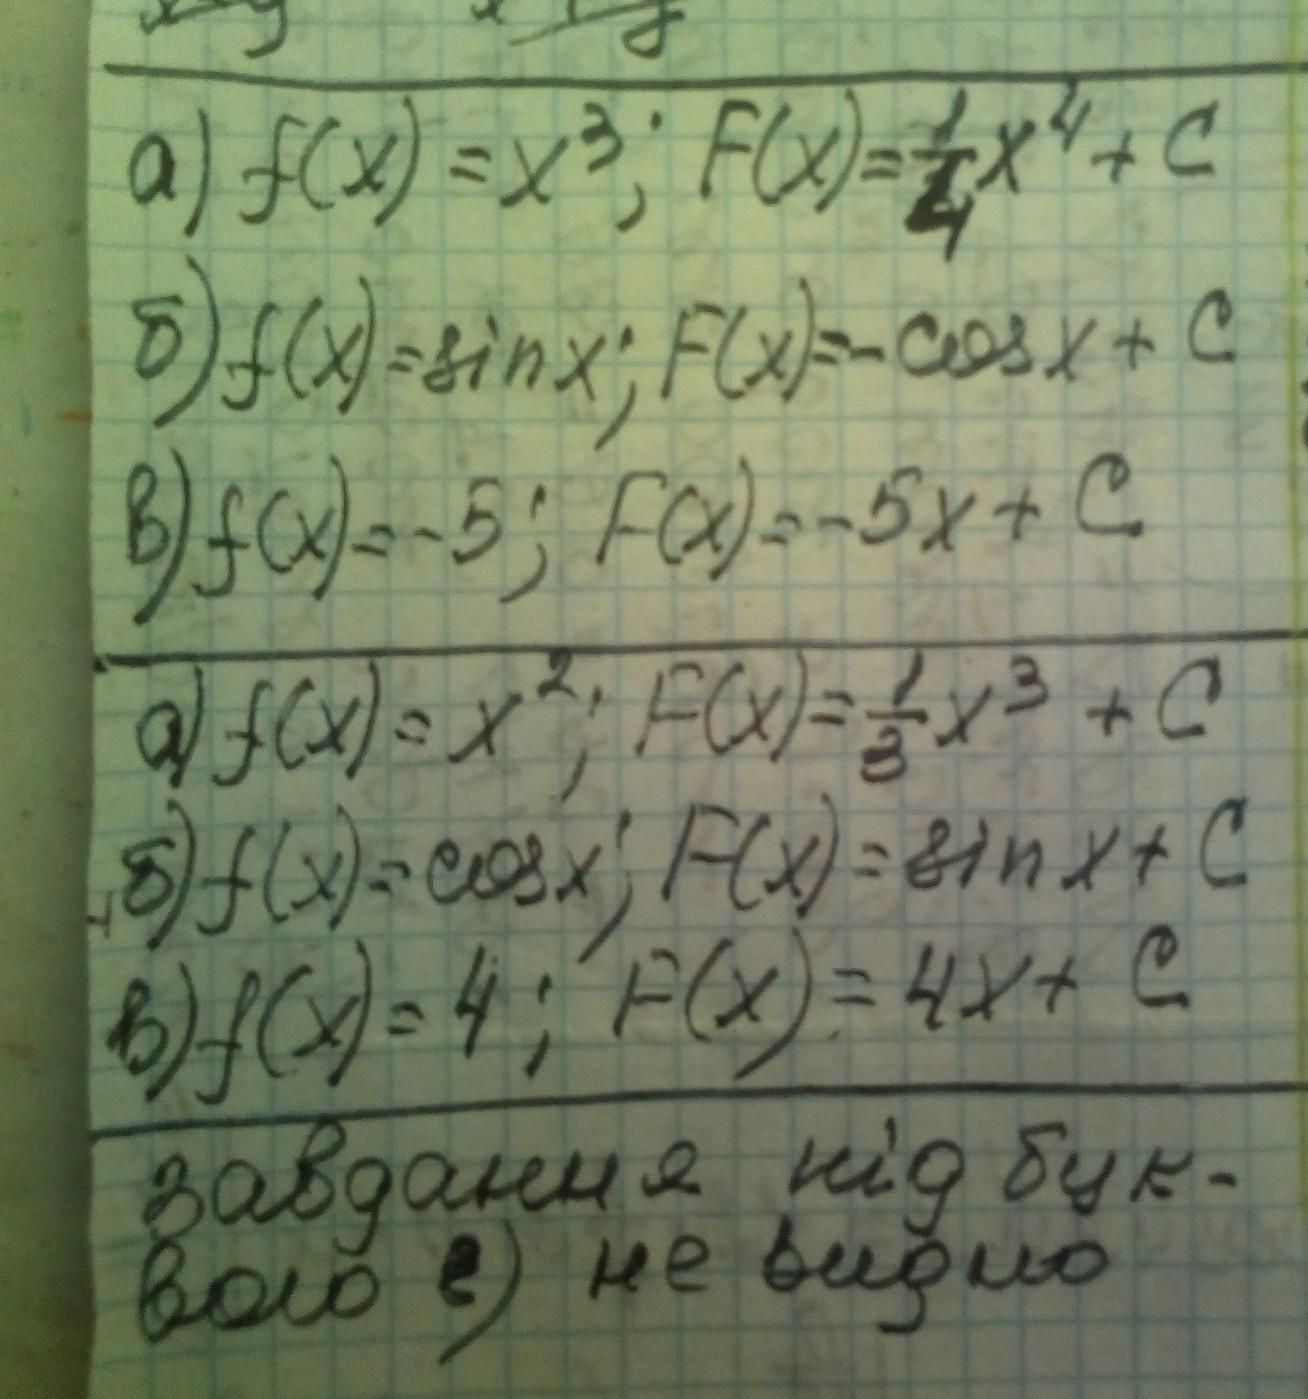 а) f(x) = x³; F(x) = 1/4 x⁴ + C
б) f(x) = sin x; F(x) = - cos x + C
в) f(x) = -5; F(x) = -5x + C
а) f(x) = x²; F(x) = 1/3 x³ + C
б) f(x) = cos x; F(x) = sin x + C
в) f(x) = 4; F(x) = 4x + C
завдання під бук-
вою е) не видно